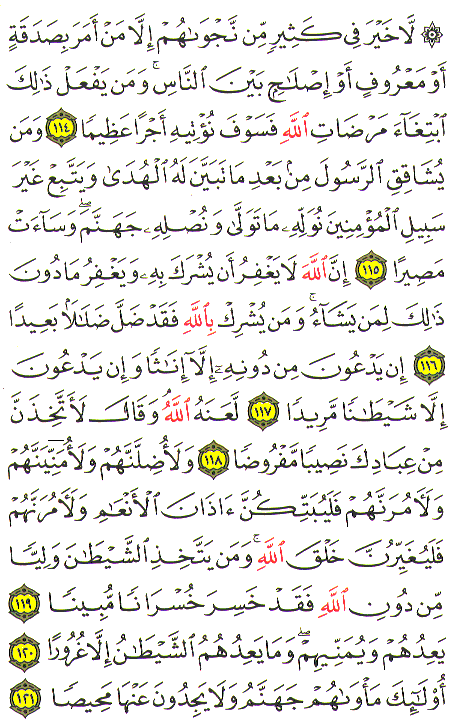 ۞ لَّا خَيۡرَ فِي كَثِيرٖ مِّن نَّجۡوَىٰهُمۡ إِلَّا مَنۡ أَمَرَ بِصَدَقَةٍ
أَوۡ مَعۡرُوفٍ أَوۡ إِصۡلَٰحِۭ بَيۡنَ ٱلنَّاسِۚ وَمَن يَفۡعَلۡ ذَٰلِكَ
ٱبۡتِغَآءَ مَرۡضَاتِ ٱللَّهِ فَسَوۡفَ نُؤۡتِيهِ أَجۡرًا عَظِيمٗا ١١٤ وَمَن
يُشَاقِقِ ٱلرَّسُولَ مِنۢ بَعۡدِ مَا تَبَيَّنَ لَهُ ٱلۡهُدَىٰ وَيَتَّبِعۡ غَيۡرَ
سَبِيلِ ٱلۡمُؤۡمِنِينَ نُوَلِّهِۦ مَا تَوَلَّىٰ وَنُصۡلِهِۦ جَهَنَّمَۖ وَسَآءَتۡ
مَصِيرًا ١١٥ إِنَّ ٱللَّهَ لَا يَغۡفِرُ أَن يُشۡرَكَ بِهِۦ وَيَغۡفِرُ مَا دُونَ
ذَٰلِكَ لِمَن يَشَآءُۚ وَمَن يُشۡرِكۡ بِٱللَّهِ فَقَدۡ ضَلَّ ضَلَٰلَۢا بَعِيدًا
١١٦ إِن يَدۡعُونَ مِن دُونِهِۦٓ إِلَّآ إِنَٰثٗا وَإِن يَدۡعُونَ
إِلَّا شَيۡطَٰنٗا مَّرِيدٗا ١١٧ لَّعَنَهُ ٱللَّهُۘ وَقَالَ لَأَتَّخِذَنَّ
مِنۡ عِبَادِكَ نَصِيبٗا مَّفۡرُوضٗا ١١٨ وَلَأُضِلَّنَّهُمۡ وَلَأُمَنِّيَنَّهُمۡ
وَلَأٓمُرَنَّهُمۡ فَلَيُبَتِّكُنَّ ءَاذَانَ ٱلۡأَنۡعَٰمِ وَلَأٓمُرَنَّهُمۡ
فَلَيُغَيِّرُنَّ خَلۡقَ ٱللَّهِۚ وَمَن يَتَّخِذِ ٱلشَّيۡطَٰنَ وَلِيّٗا
مِّن دُونِ ٱللَّهِ فَقَدۡ خَسِرَ خُسۡرَانٗا مُّبِينٗا ١١٩
يَعِدُهُمۡ وَيُمَنِّيهِمۡۖ وَمَا يَعِدُهُمُ ٱلشَّيۡطَٰنُ إِلَّا غُرُورًا ١٢٠
أُوْلَٰٓئِكَ مَأۡوَىٰهُمۡ جَهَنَّمُ وَلَا يَجِدُونَ عَنۡهَا مَحِيصٗا ١٢١